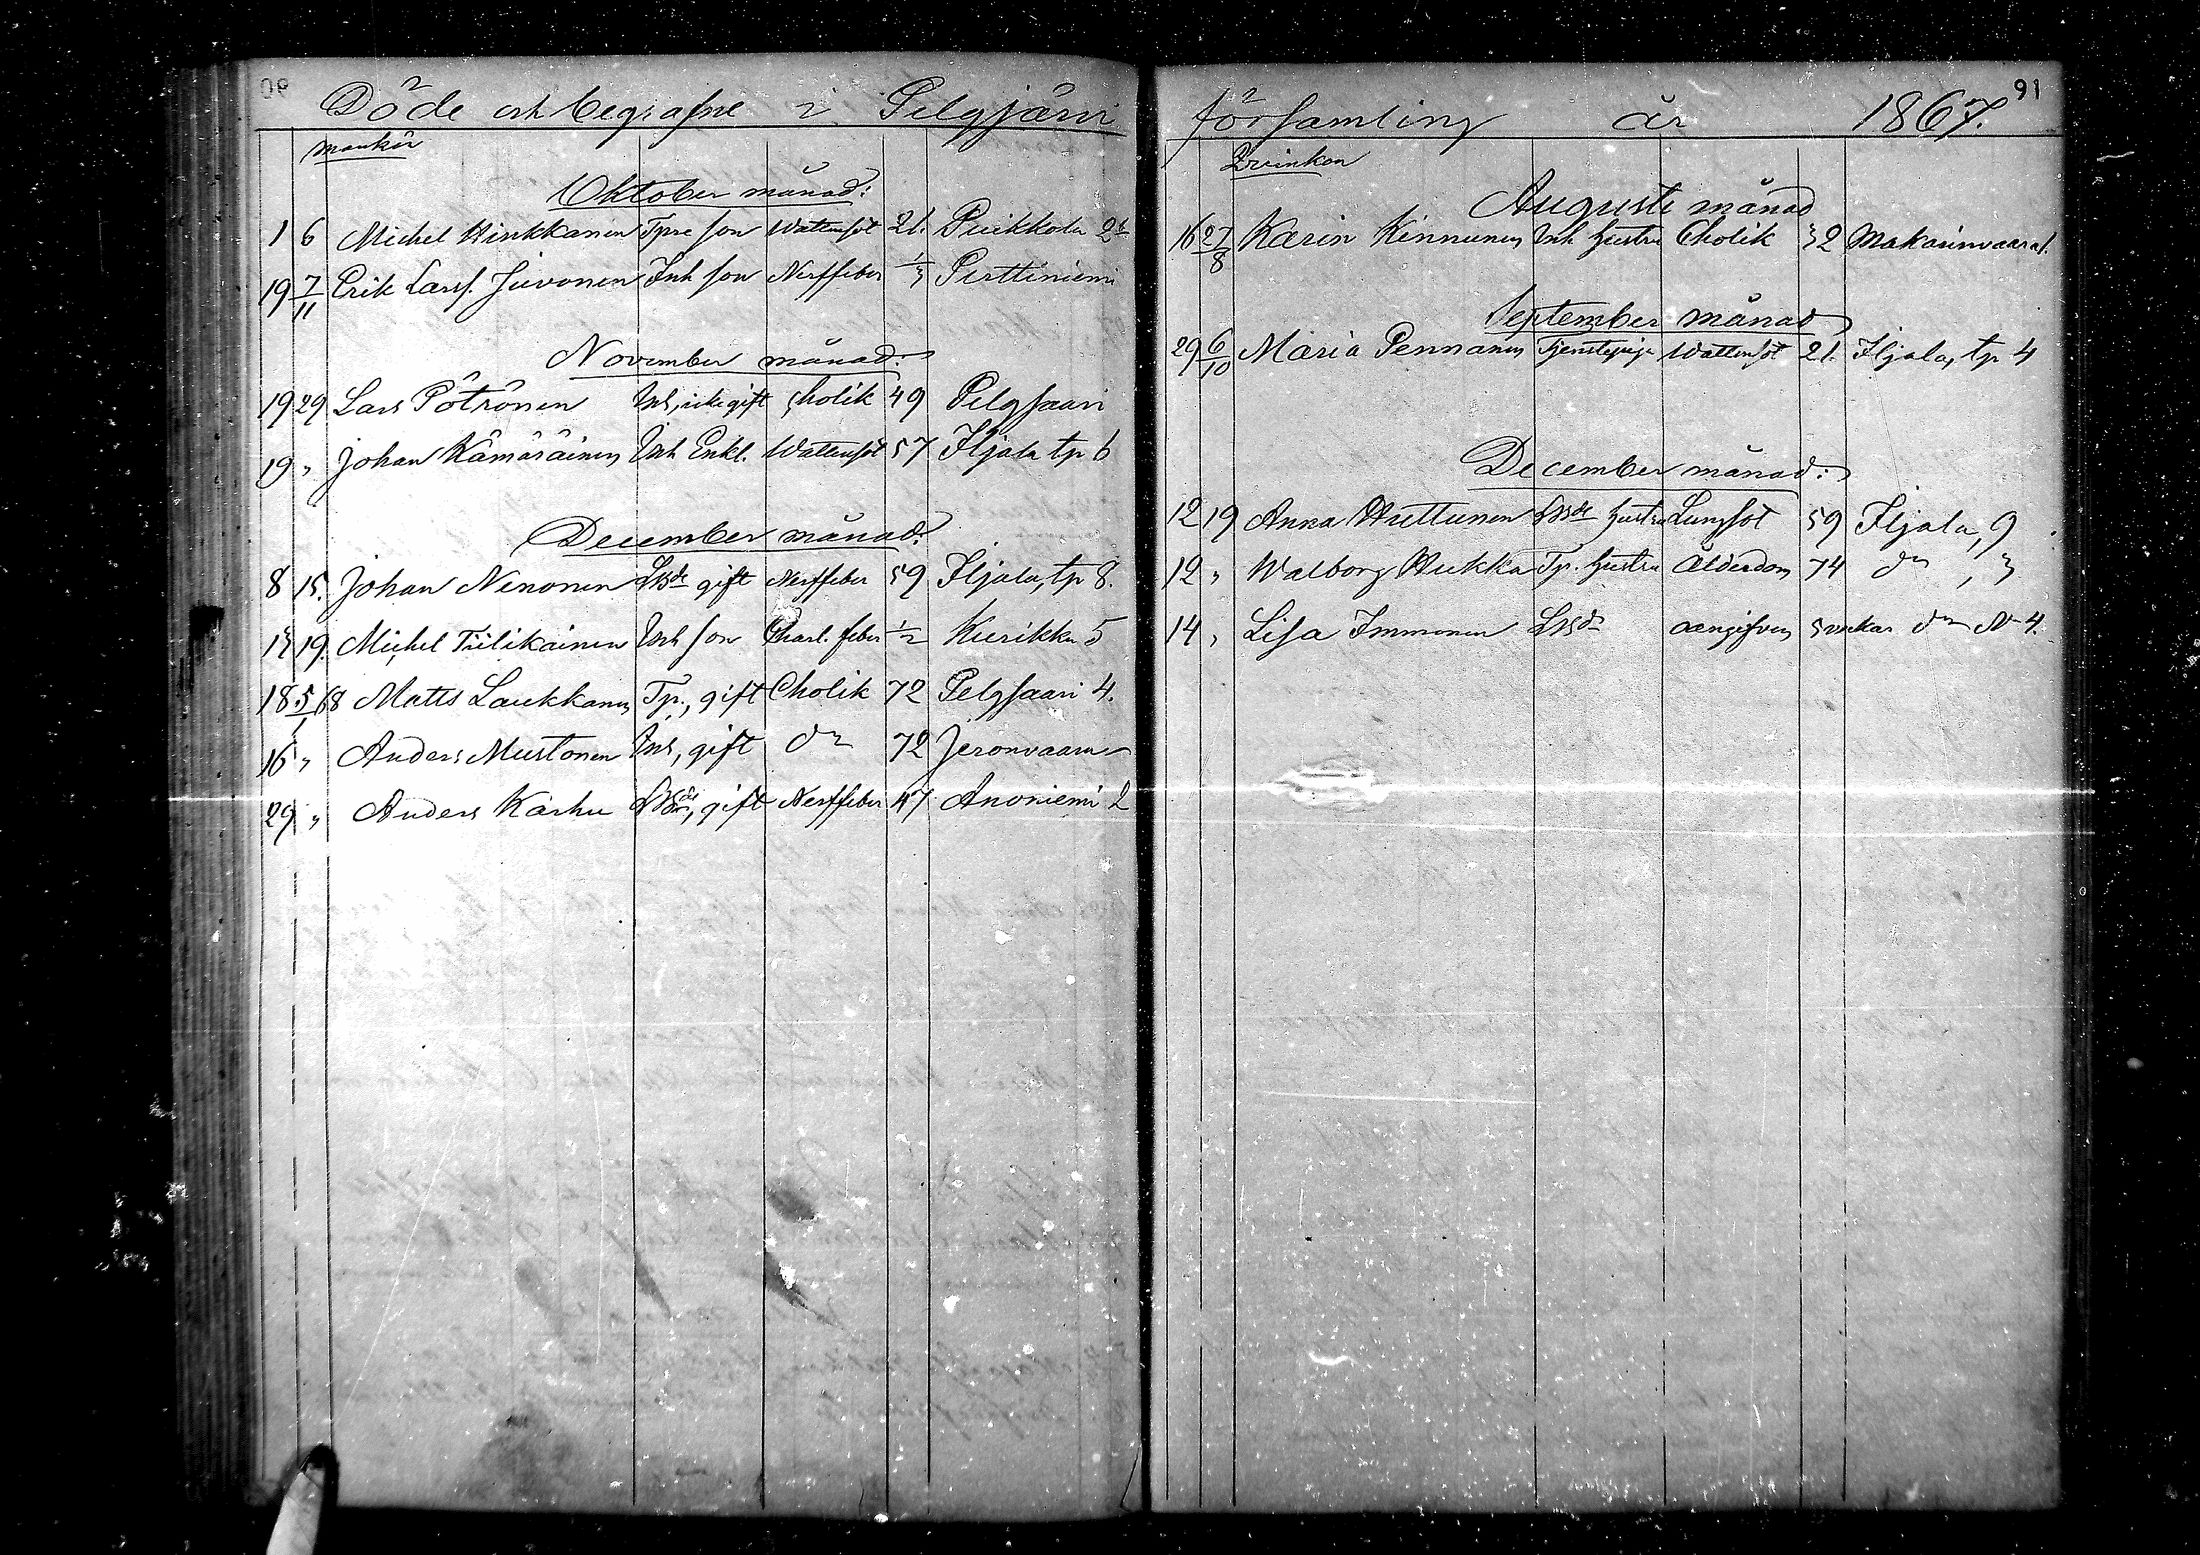 90
Döde och begrafne i Pelgjärvi
mankön
Oktober månad:
1 6 Michel Hirkkanen Tpre son Wattensot 21. Puikkola 2
19 7/11 Erik Larss. Juvonen Inh son Nerffeber 1/3 Perttiniemi
November månad:
19 29 Lars Pötrönen Inh, icke gift Cholik 49 Pelgsaari
19 " Johan Kämäräinen Inh Enkl. Wattensot 57 Iljala tp 6
December månad:
8 15. Johan Nenonen gift Nerffeber 59 Iljala, tp 8.
13 19. Michel Tiilikainen Inh son Charl. feber 1/2 Kurikka 5
18 5/1 68 Matts Laukkanen Tp., gift Cholik 72 Pelgsaari 4.
16 " Anders Mustonen Inh, gift do 72 Jeronvaara
29 " Anders Karhu gift Nerffeber 47 Anoniemi 2
91
församling år 1867.
Qvinkön
Augusti månad
16 27/8 Karin Kinnunen Inh hustru Cholik 32 Makarinvaara
September månad
29 6/10 Maria Pennanen Tjenstepiga Wattensot 21. Iljala, tp 4
December månad:
12 19 Anna Huttunen hustru Lungsot 59 Iljala, 9
12 " Walborg Hukka Tp. hustru Ålderdom 74 do , 3
14 " Lisa Immonen oangifven 3 veckor do No 4.